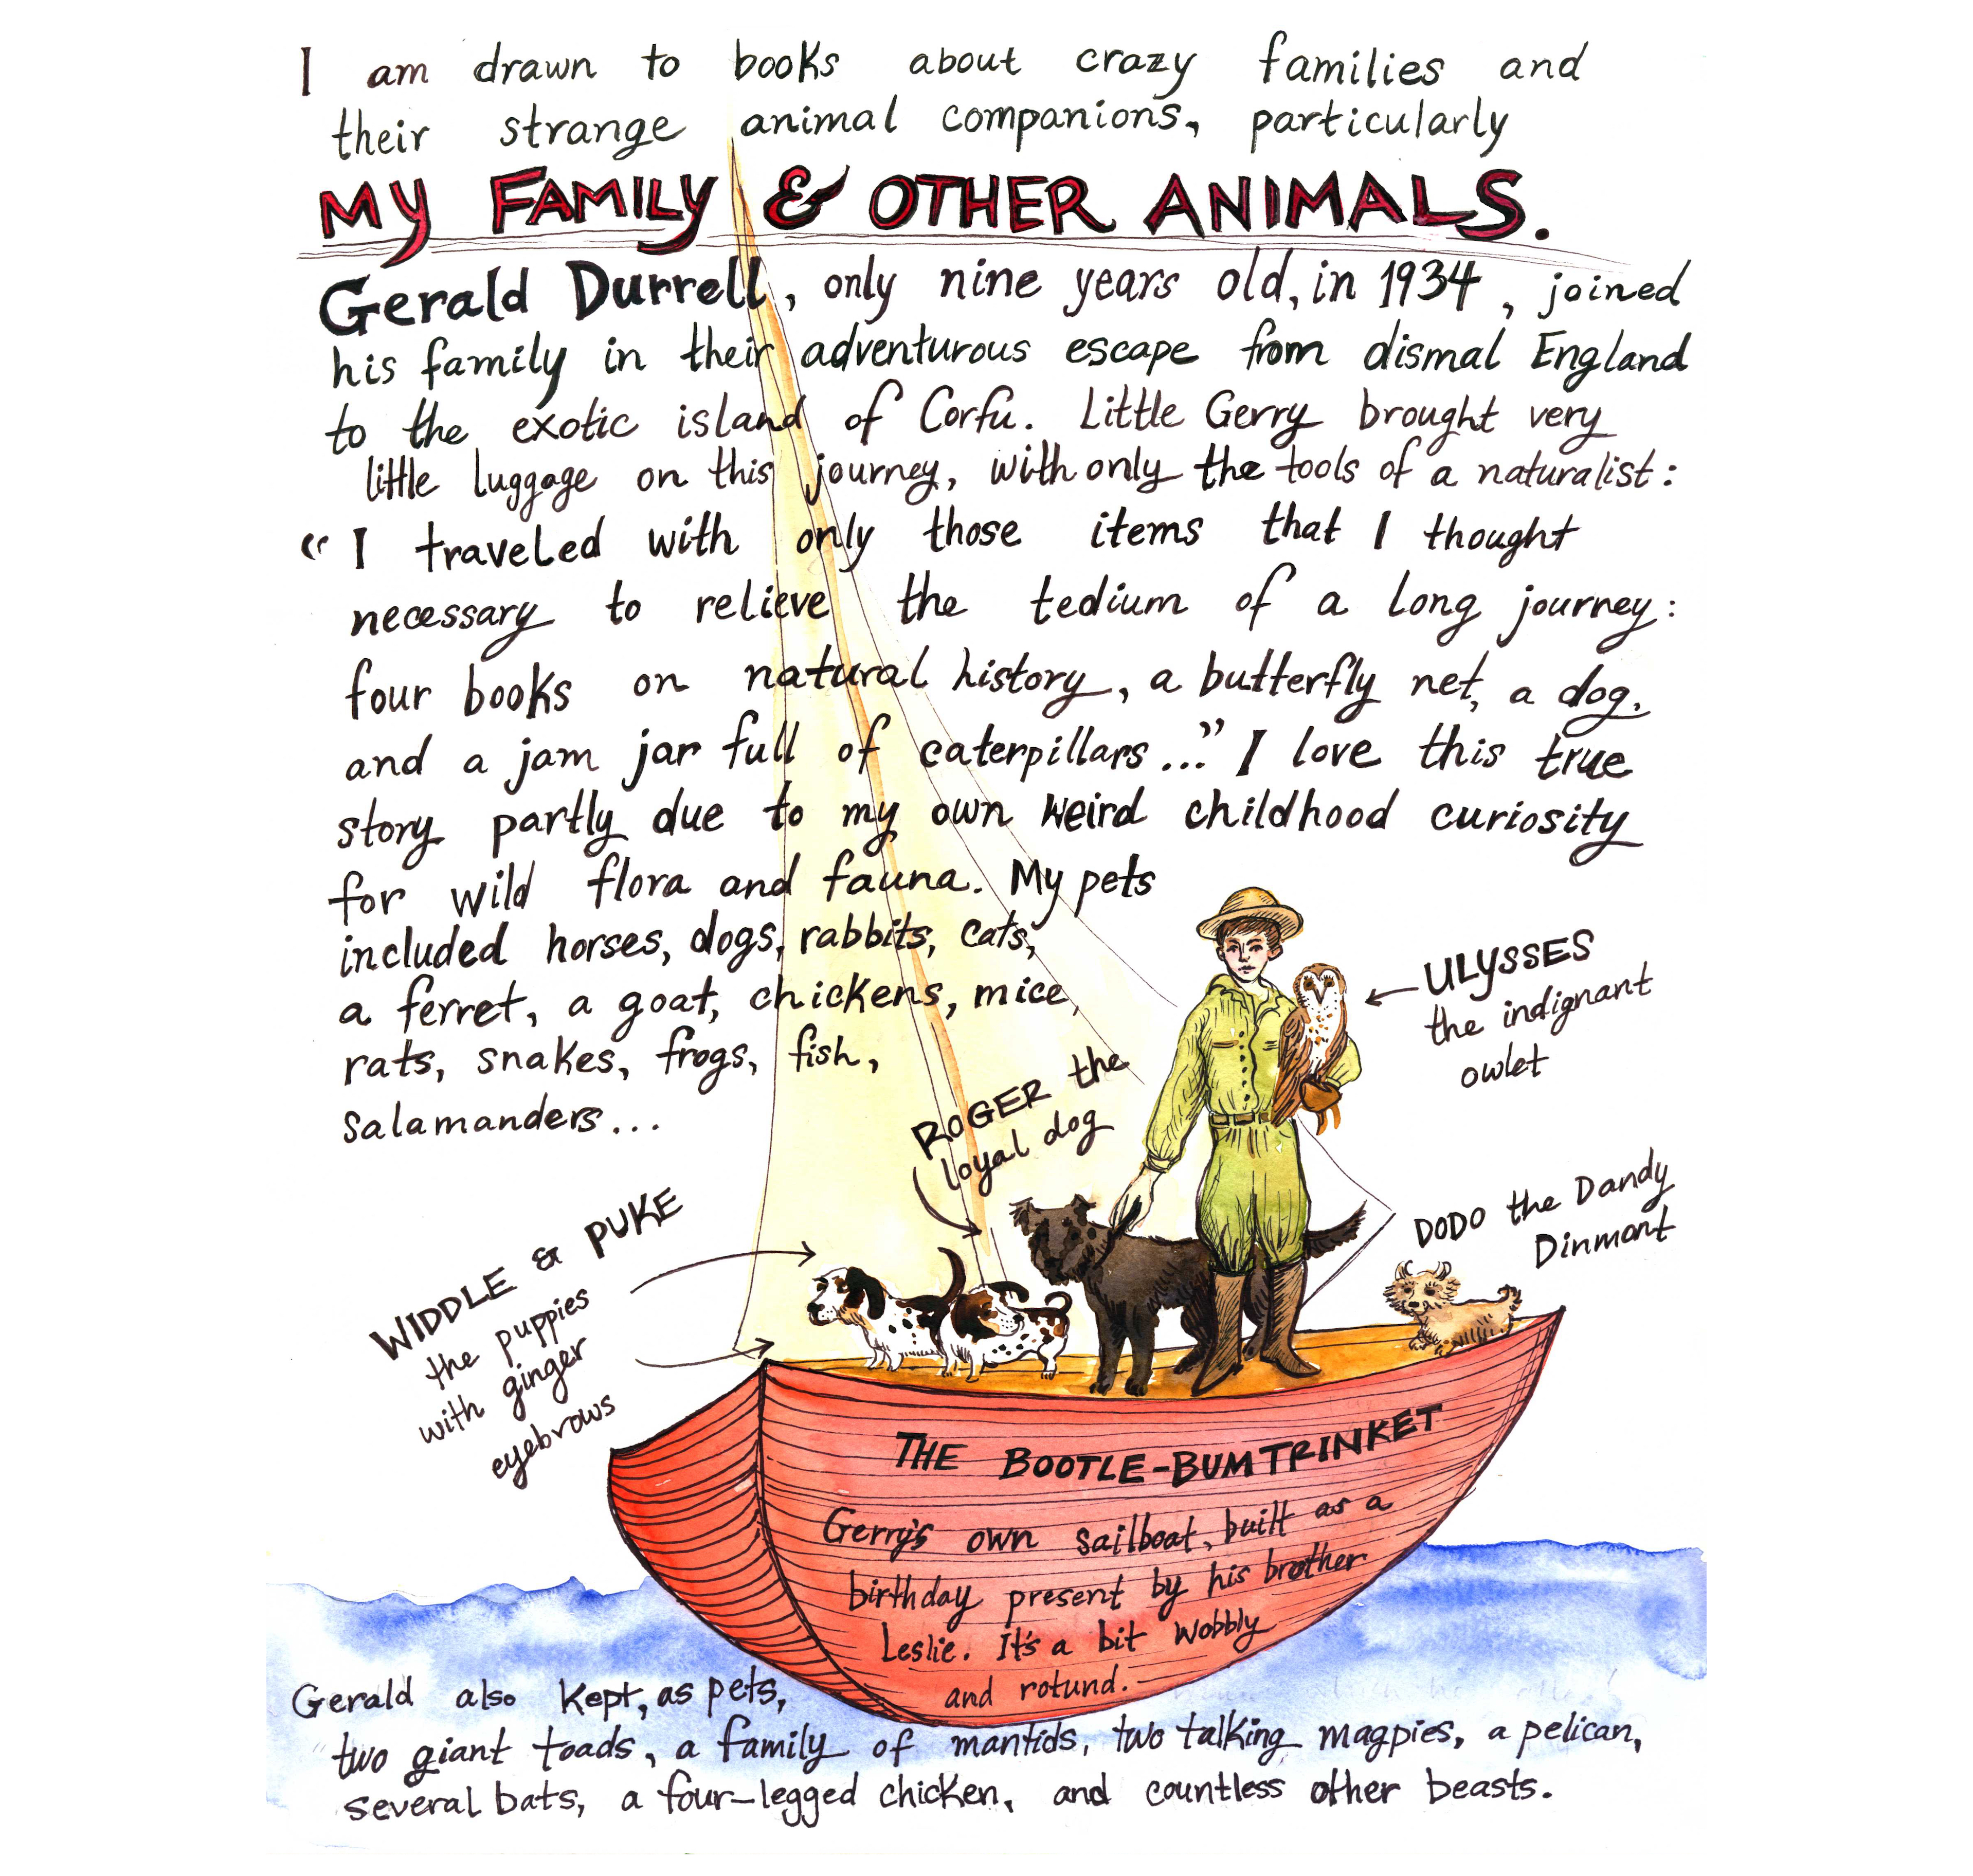 I am drawn to books about crazy families and
their strange animal companions, particularly
MY FAMILY & OTHER ANIMALS.
Gerald Durrell, only nine years old, in 1934, joined
his family in their adventurous escape from dismal England
to the exotic island of Corfu. Little Gerry brought very
little luggage on this journey, with only the tools of a naturalist:
"I traveled with only those items that I thought
necessary to relieve the tedium of a long journey:
four books on natural history, a butterfly net, a dog,
and a jam jar full of caterpillars..." I love this true
story partly due to my own weird childhood curiosity
for wild flora and fauna. My pets
included horses, dogs, rabbits, cats,
a ferret, a goat, chickens, mice,
rats, snakes, frogs, fish,
salamanders...
ULYSSES
the indignant
owlet
ROGER the
loyal dog
DODO the Dandy
Dinmont
WIDDLE & PUKE
the puppies
with ginger
eyebrows
THE BOOTLE-BUMTRINKET
Gerry's own sailboat, built as a
birthday present by his brother
Leslie. It's a bit wobbly
and rotund.
Gerald also kept, as pets,
two giant toads, a family of mantids, two talking magpies, a pelican,
several bats, a four-legged chicken, and countless other beasts.